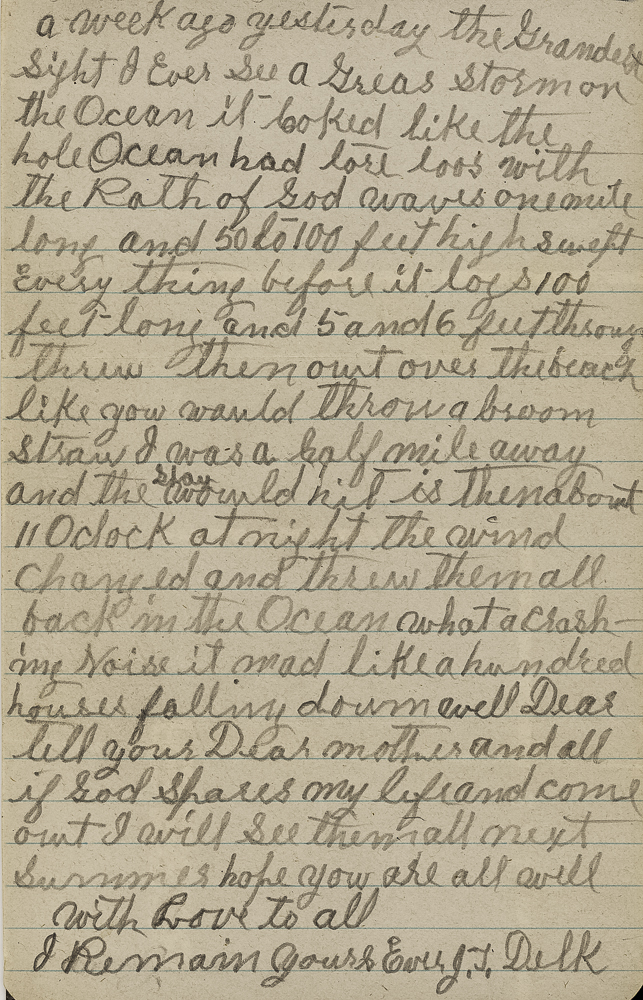 a week ago yesterday the Grandest
Sight I Ever See a Greas Storm on
the Ocean it looked like the
hole Ocean had lore loos with
the Rath of God waves one mile
long and 50 to 100 feet high swept
Every thing before it logs 100
feet long and 5 and 6 feet through
threw them out over the beach
like you would throw a broom
straw I was a half mile away
and the spray would hit is then about
11 Oclock at night the wind
changed and threw them all
back in the Ocean what a crash-
ing Noise it mad like a hundred
houses falling down well Dear
tell your Dear mother and all
if God spares my life and come
out I will See them all next
Summer hope you are all well
with Love to all
I Remain yours Ever J. T. Delk